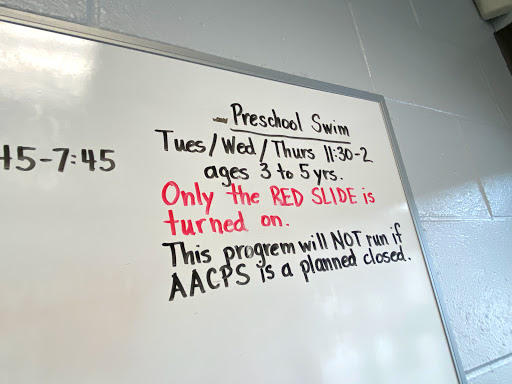 Preschool Swim
Tues/Wed/Thurs 11:30-2
ages 3 to 5 yrs.
Only the RED SLIDE is
turned on.
This progrem will NOT run if
AACPS is a planned closed.
45-7:45